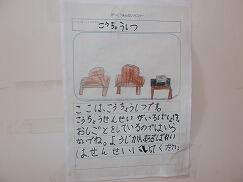 こうちょうしつ
ここは、こうちょうしつです。
こうちょうせんせいがいるへやです。
おしごとをしているのではいら
ないでね。ようじがあるばあい
はせんせいにしてください